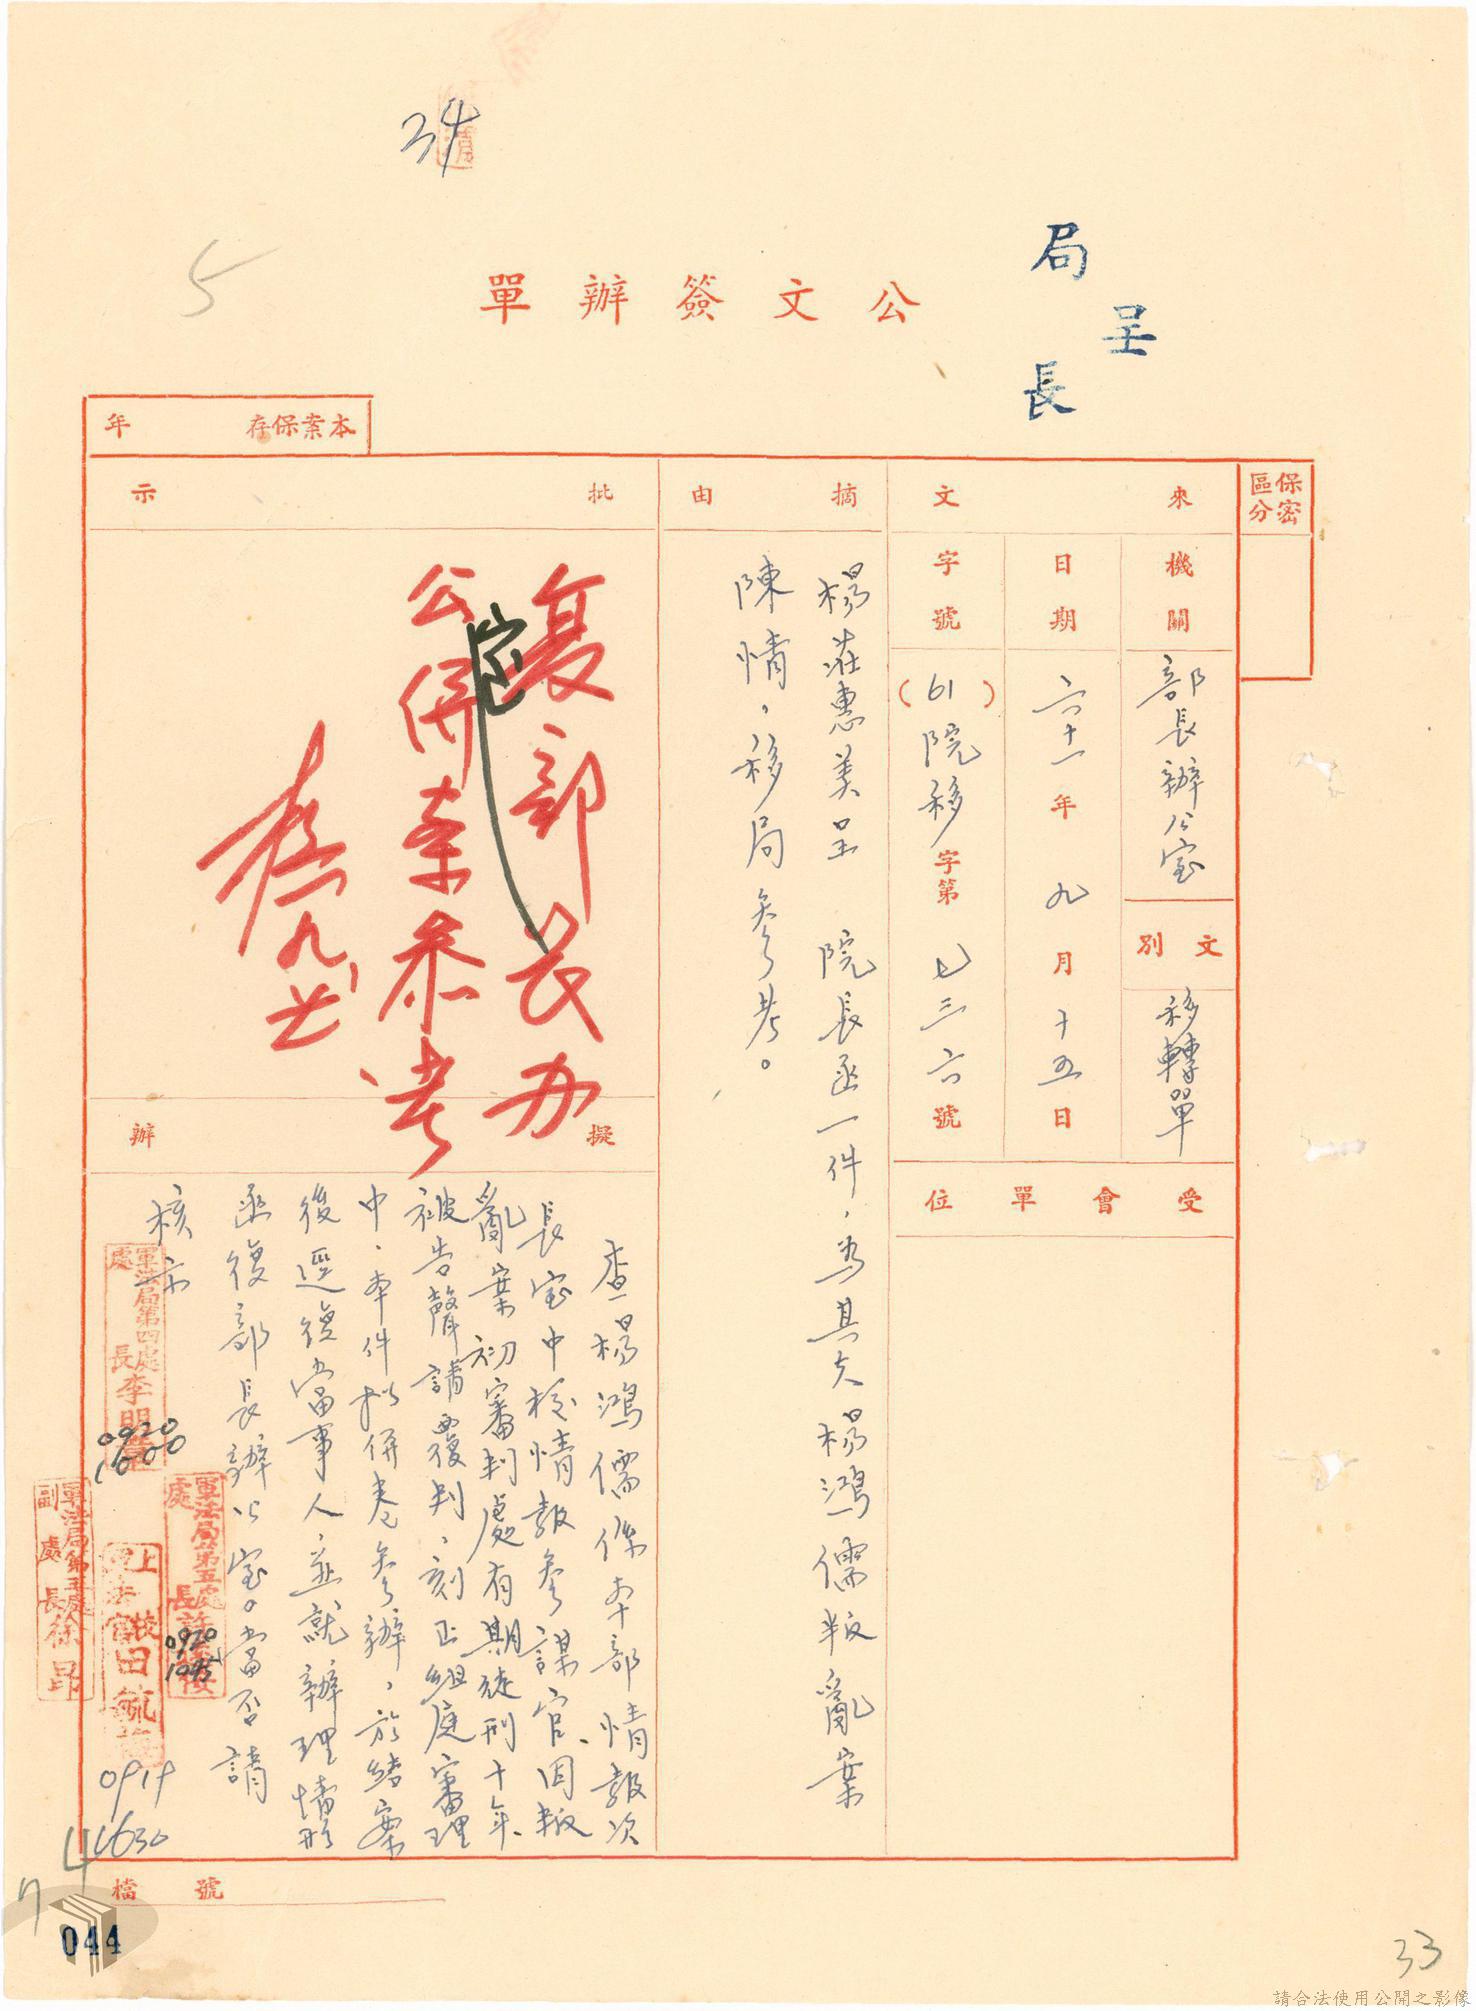 34
5
呈
局長
公文簽辦單
本案保存 年
保密區分
來文
機關
部長辦公室
文別
移轉單
日期
六十一年九月十五日
字號
(61)院移字第七三六號
受會單位
摘由
楊莊惠美呈 院長函一件,為其夫楊鴻儒叛亂案
陳情,移局參考。
批示
复部长办
室
公併案参考
九
擬辦
查楊鴻儒係本部情報次
長室中校情報參謀官、因叛
亂案初審判處有期徒刑十年、
被告聲請覆判,刻正組庭審理
中、本件擬併卷參辦,於結案
後逕復當事人,並就辦理情形
函復部長辦公室。當否請
核示
軍法局第四處處長李明
0920
1600
軍法局第五處處長許
0920
1045
軍法局第五處副處長徐昂
上校軍法官田毓
0919
1630
檔號
74
044
33
請合法使用公開之影像